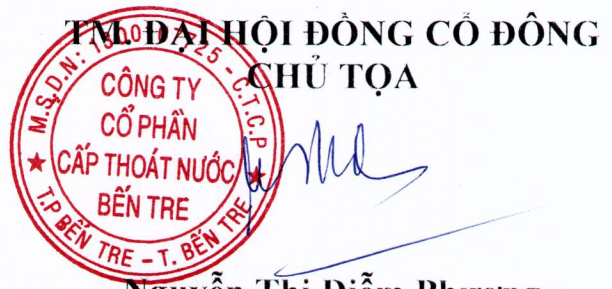 TM. ĐẠI HỘI ĐỒNG CỔ ĐÔNG
CHỦ TỌA
M.S.D.N: - C.T.C.P
CÔNG TY
CỔ PHẦN
CẤP THOÁT NƯỚC
BẾN TRE
T.P BẾN TRE - T. BẾN TRE
Nguyễn Thị Diễm Phương